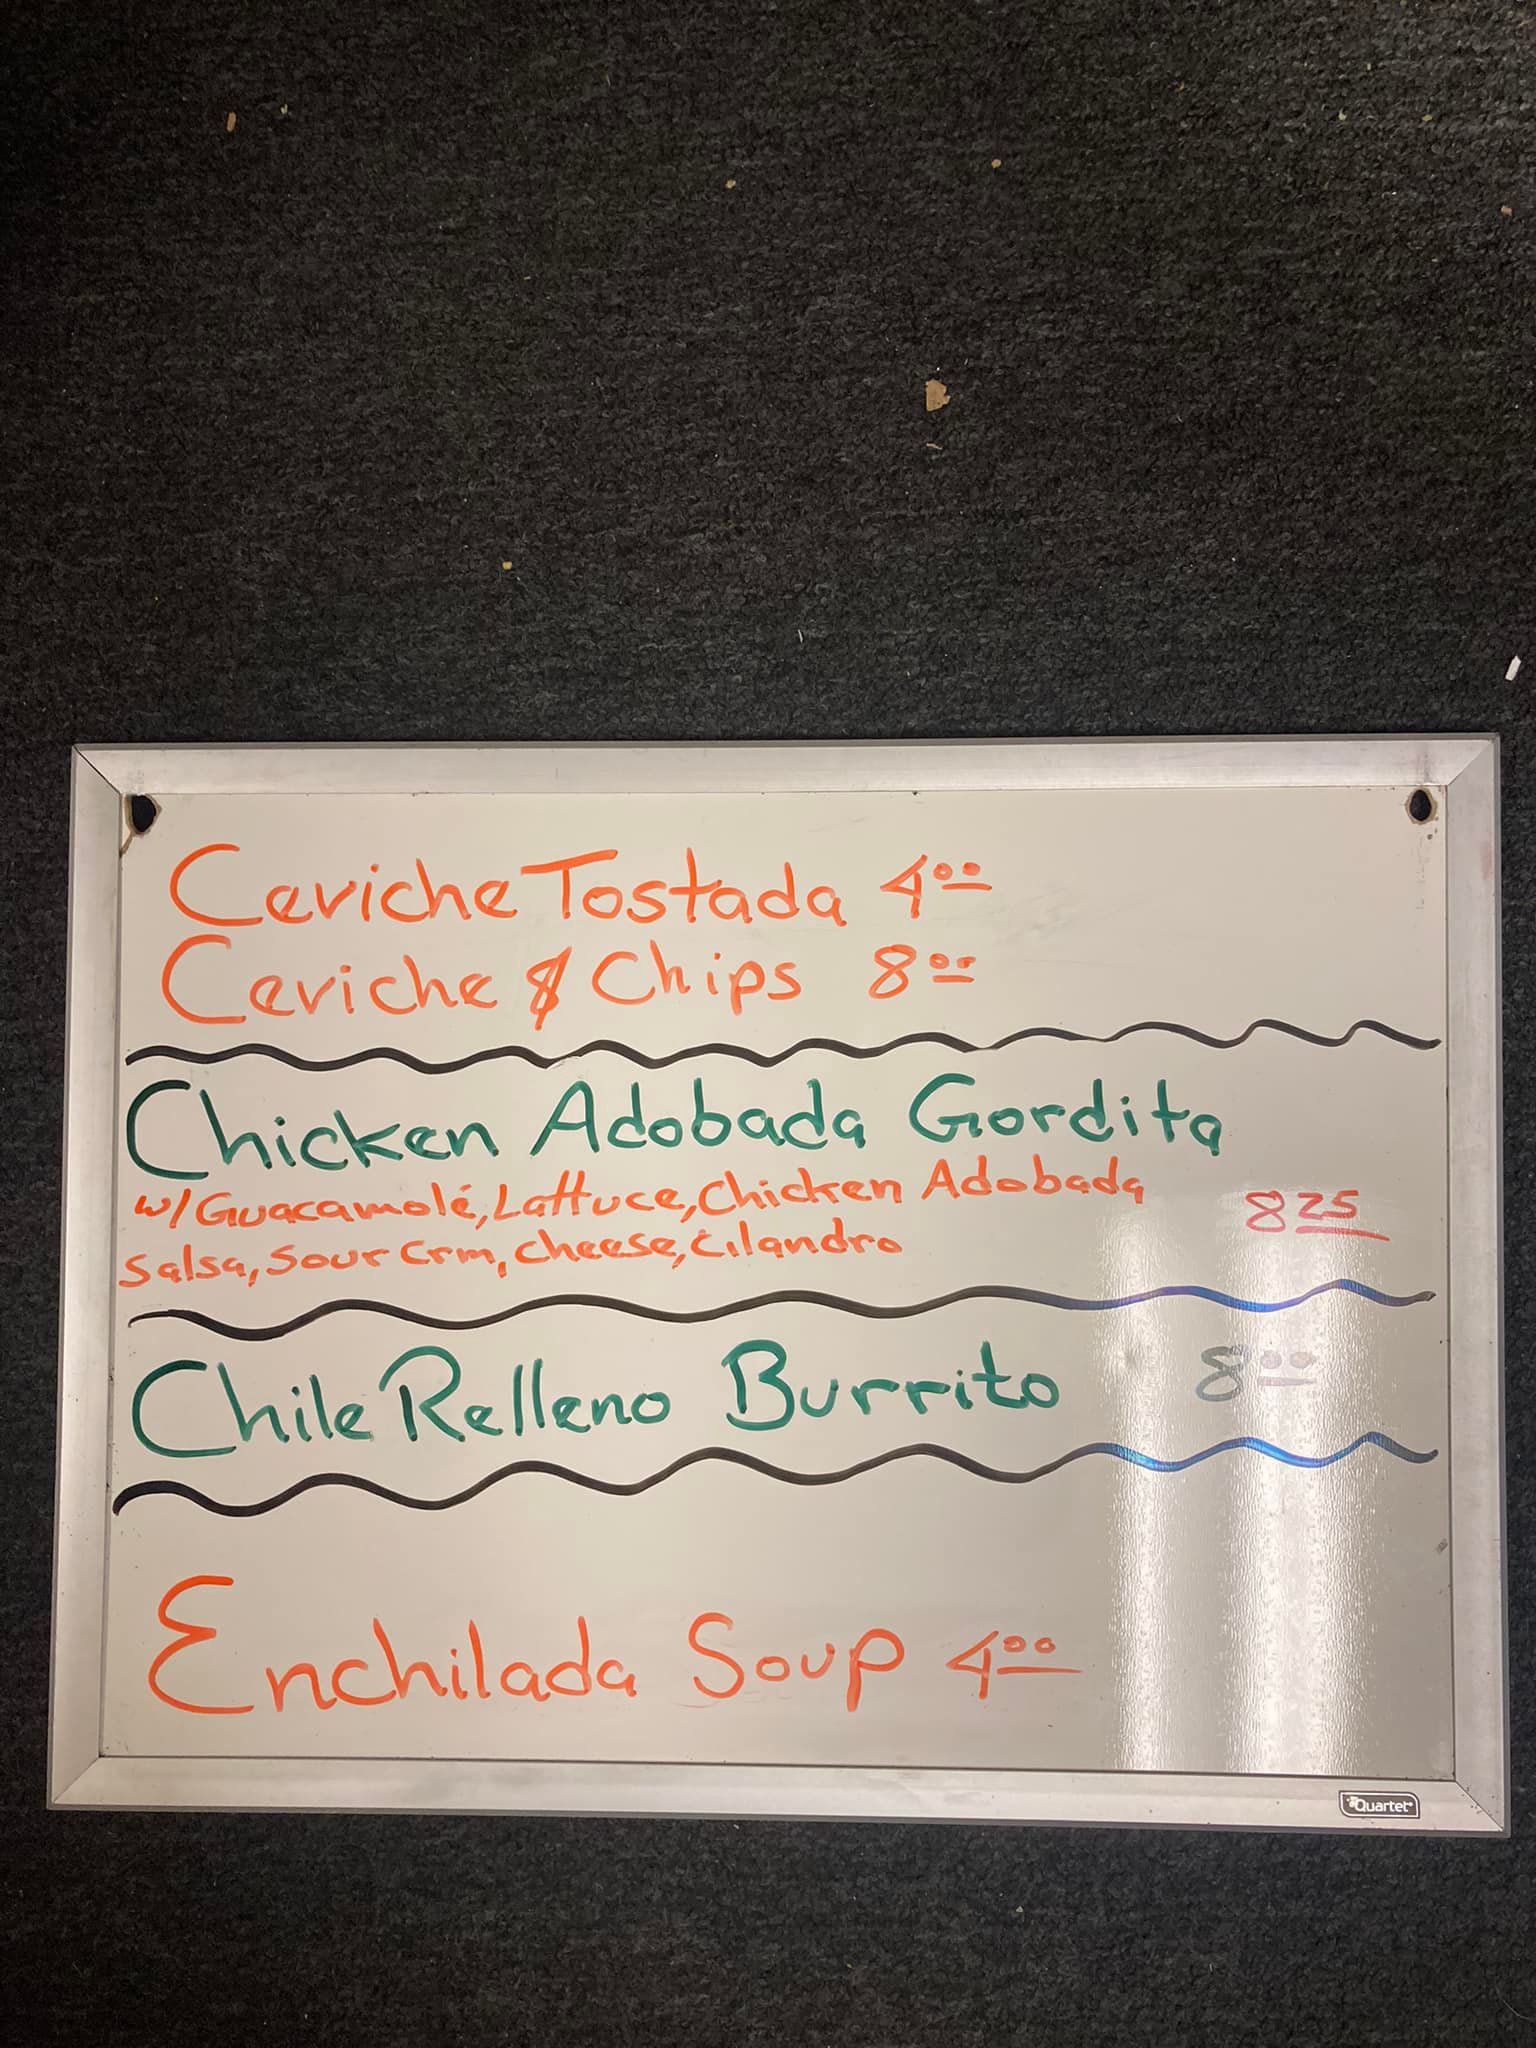 Ceviche Tostada 4.00
Ceviche & Chips 8.00
Chicken Adobada Gordita
w/ Guacamolé, Lattuce, Chicken Adobada 8.25
Salsa, Sour Crm, Cheese, Cilandro
Chile Relleno Burrito 8.00
Enchilada Soup 4.00
Quartet